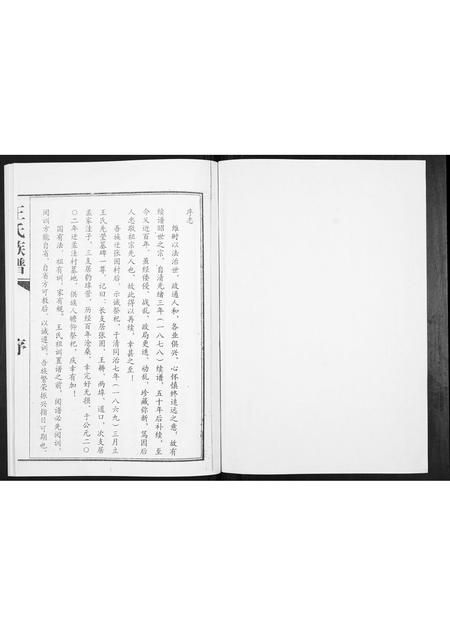 序志
维时以法治世，政通人和，各业俱兴，心怀慎终追远之意，故有
续谱昭世之宗。自清光绪三年（一八七八）续谱，五十年后补续，至
今又近百年，虽经倭侵、战乱、政局更迭、动乱，珍藏弥新，笃因后
人忠敬祖宗先人也，故此得以再续，幸甚之至！
吾族迁张固村后，示诚祭祀，于清同治七年（一八六九）三月立
王氏先茔墓碑一尊，记曰：长支居张固、王耨、两埠、道口，次支居
孟家洼子，三支居豹埠营，历经百年沧桑，幸完好无损，于公元二〇
〇二年迁孟洼村墓地，供族人瞻仰祭祀，庆幸有加！
国有法，祖有训，家有规。王氏祖训置谱之前，阅谱必先阅训，
阅训方能自省，自省方可教后，以诚遵训，吾族繁荣振兴指日可期也。
王氏族谱
序